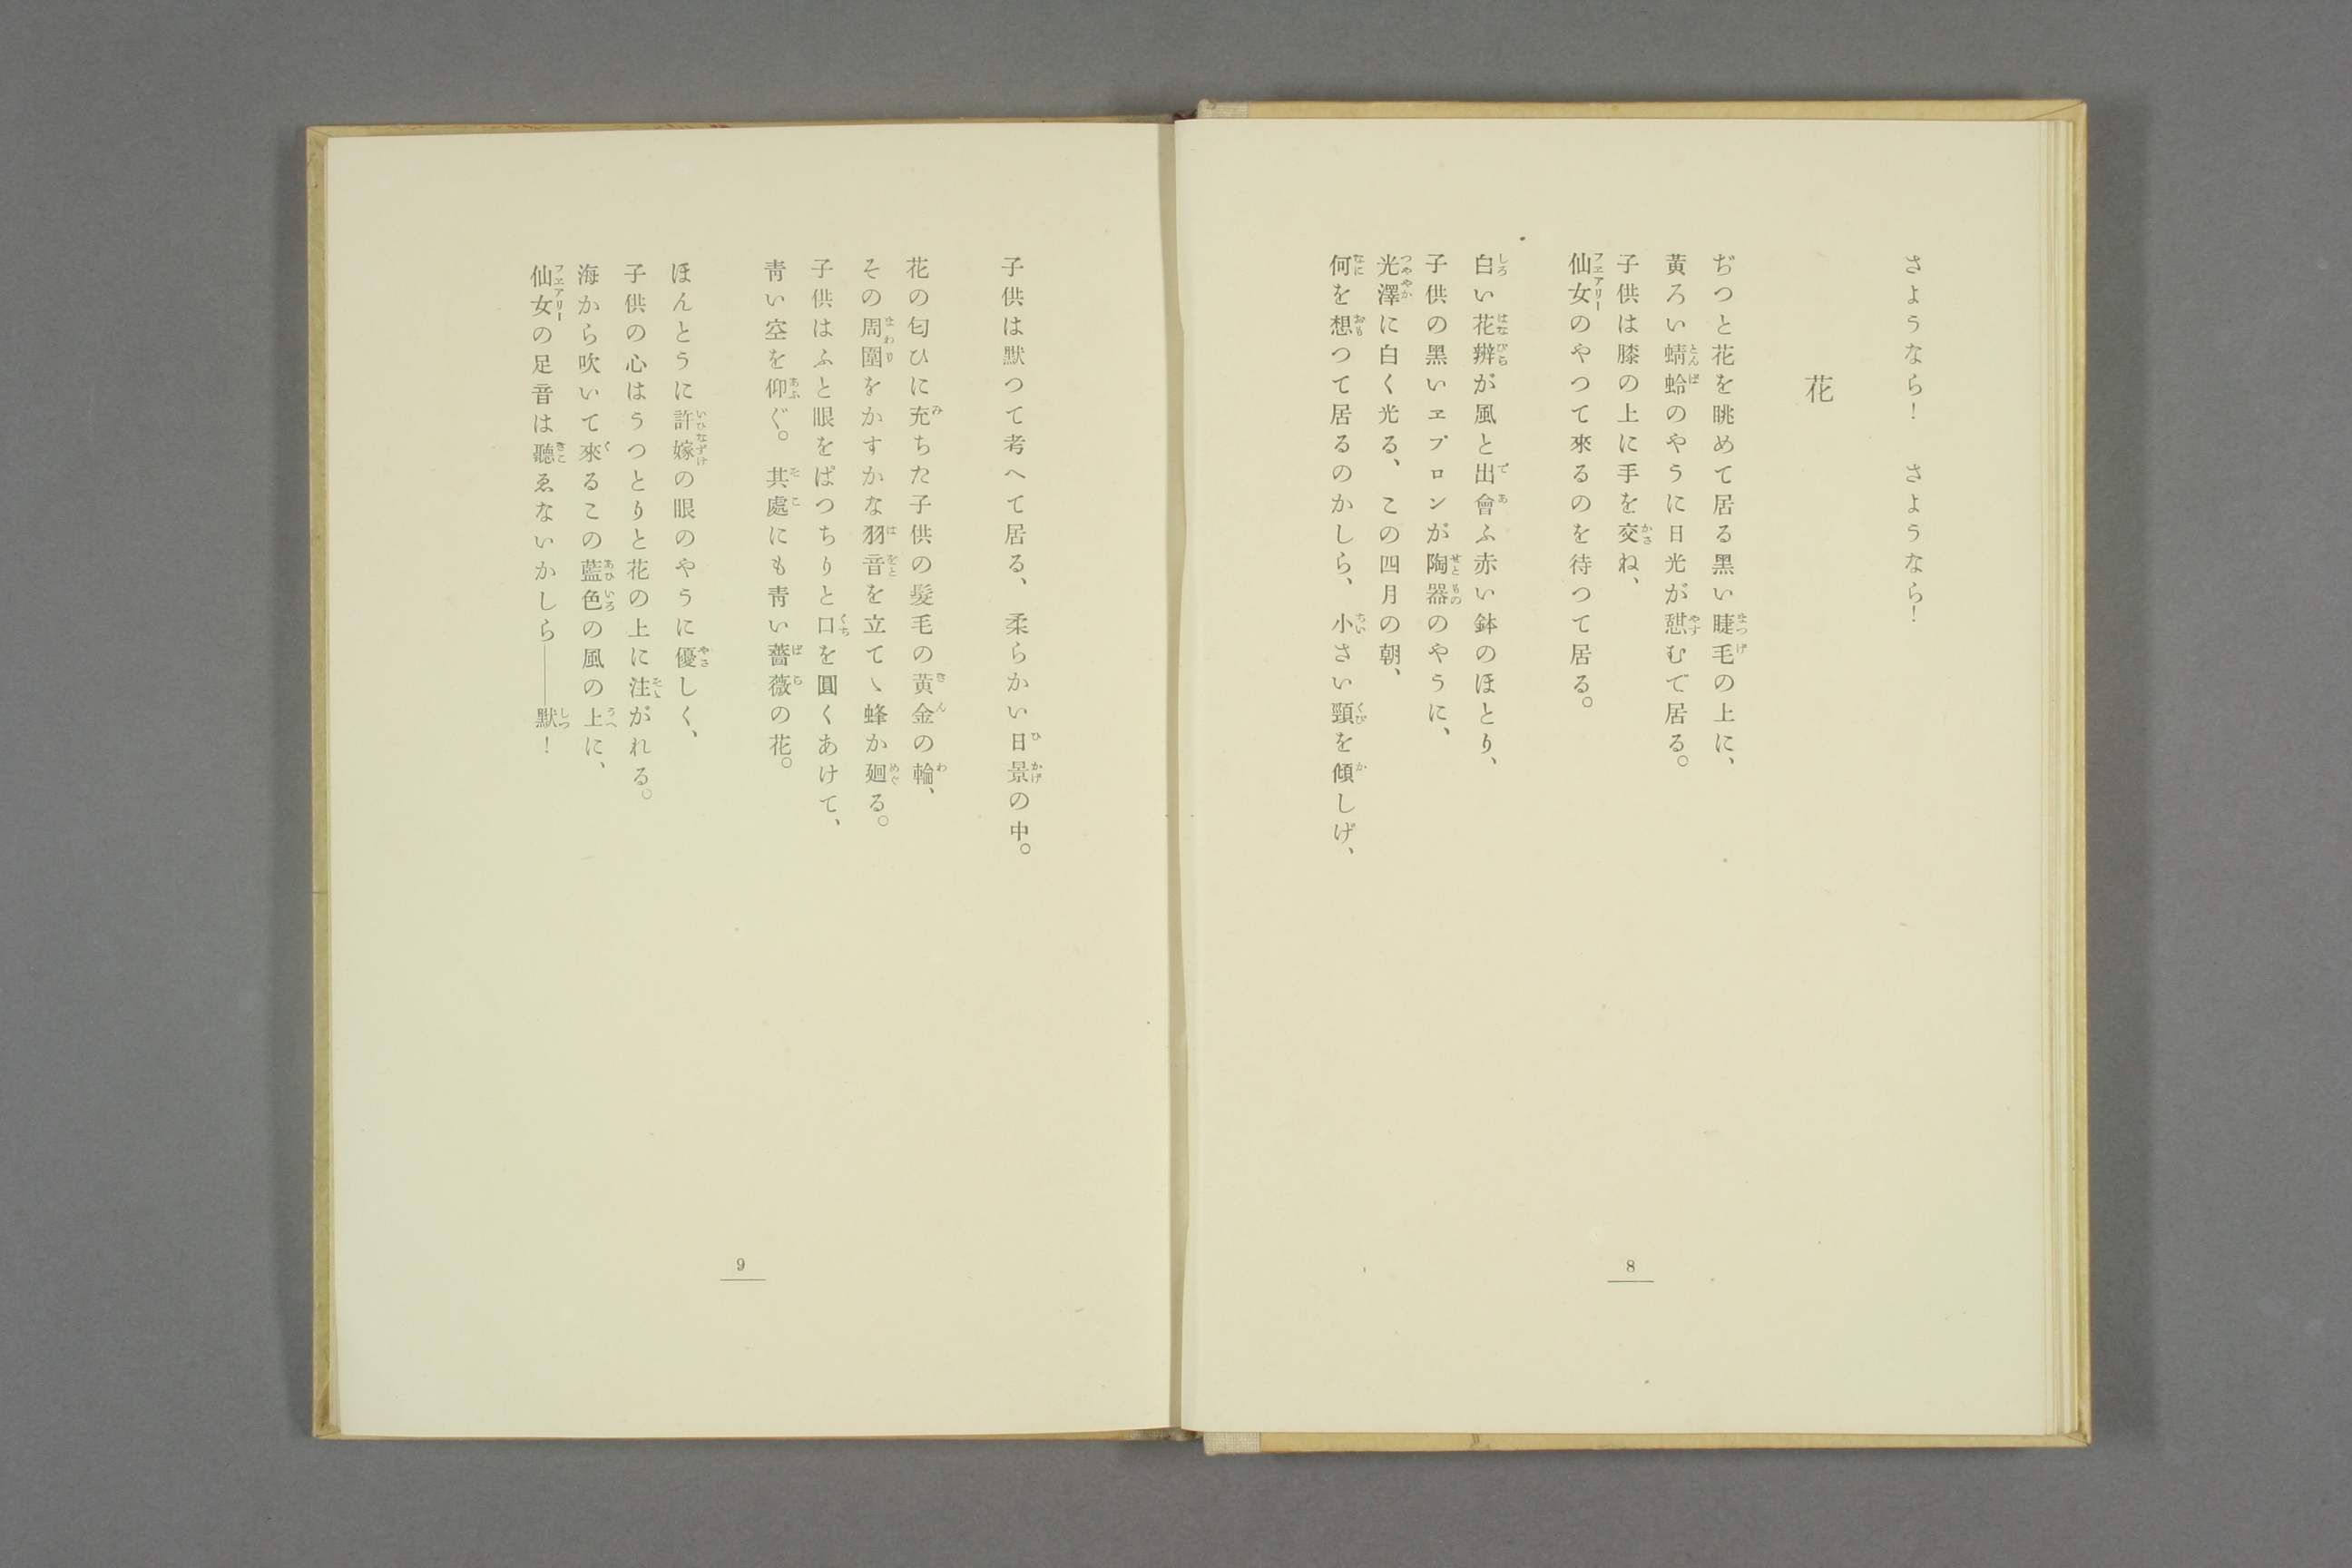 さようなら！　さようなら！
花
ぢつと花を眺めて居る黑い睫毛の上に、
黄ろい蜻蛉のやうに日光が憇むで居る。
子供は膝の上に手を交ね、
仙女のやつて來るのを待つて居る。
白い花辨が風と出會ふ赤い鉢のほとり、
子供の黑いヱプロンが陶器のやうに、
光澤に白く光る、この四月の朝、
何を想つて居るのかしら、小さい頸を傾しげ、
8
子供は默つて考へて居る、柔らかい日景の中。
花の匂ひに充ちた子供の髮毛の黄金の輪、
その周圍をかすかな羽音を立てゝ蜂か廻る。
子供はふと眼をぱつちりと口を圓くあけて、
靑い空を仰ぐ。其處にも靑い薔薇の花。
ほんとうに許嫁の眼のやうに優しく、
子供の心はうつとりと花の上に注がれる。
海から吹いて來るこの藍色の風の上に、
仙女の足音は聽ゑないかしら——默！
9